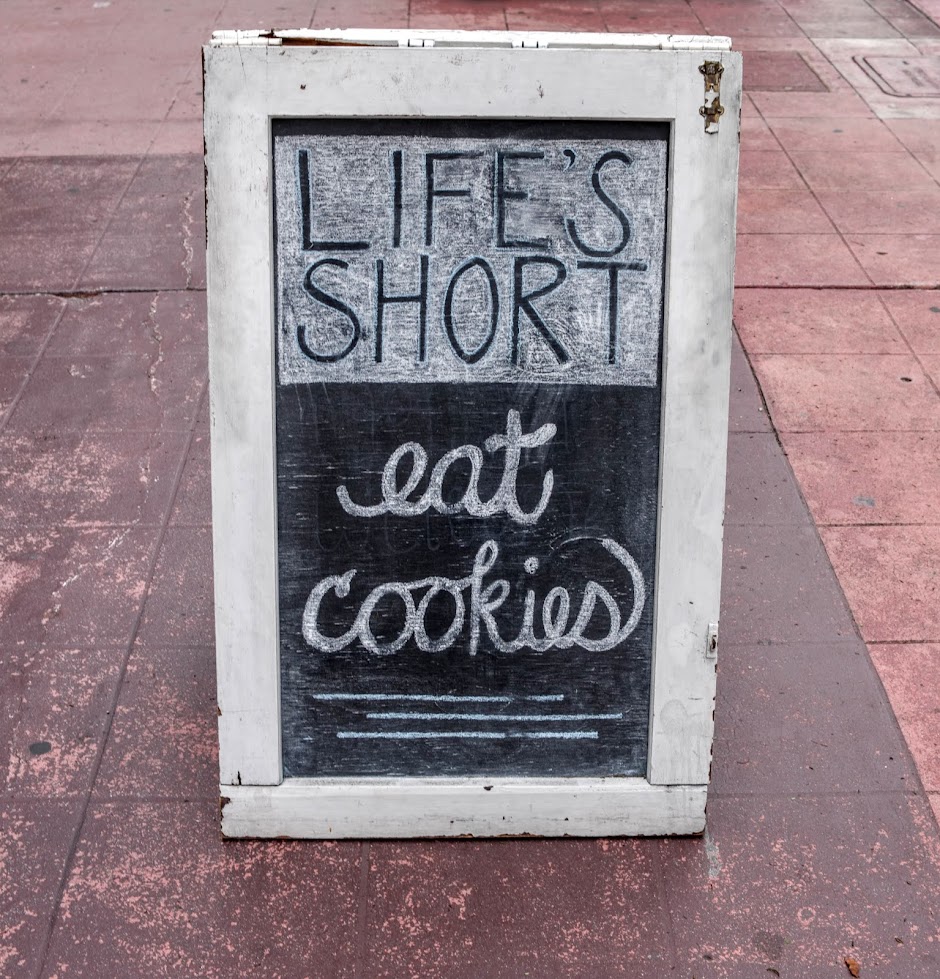 LIFE'S
SHORT
eat
cookies